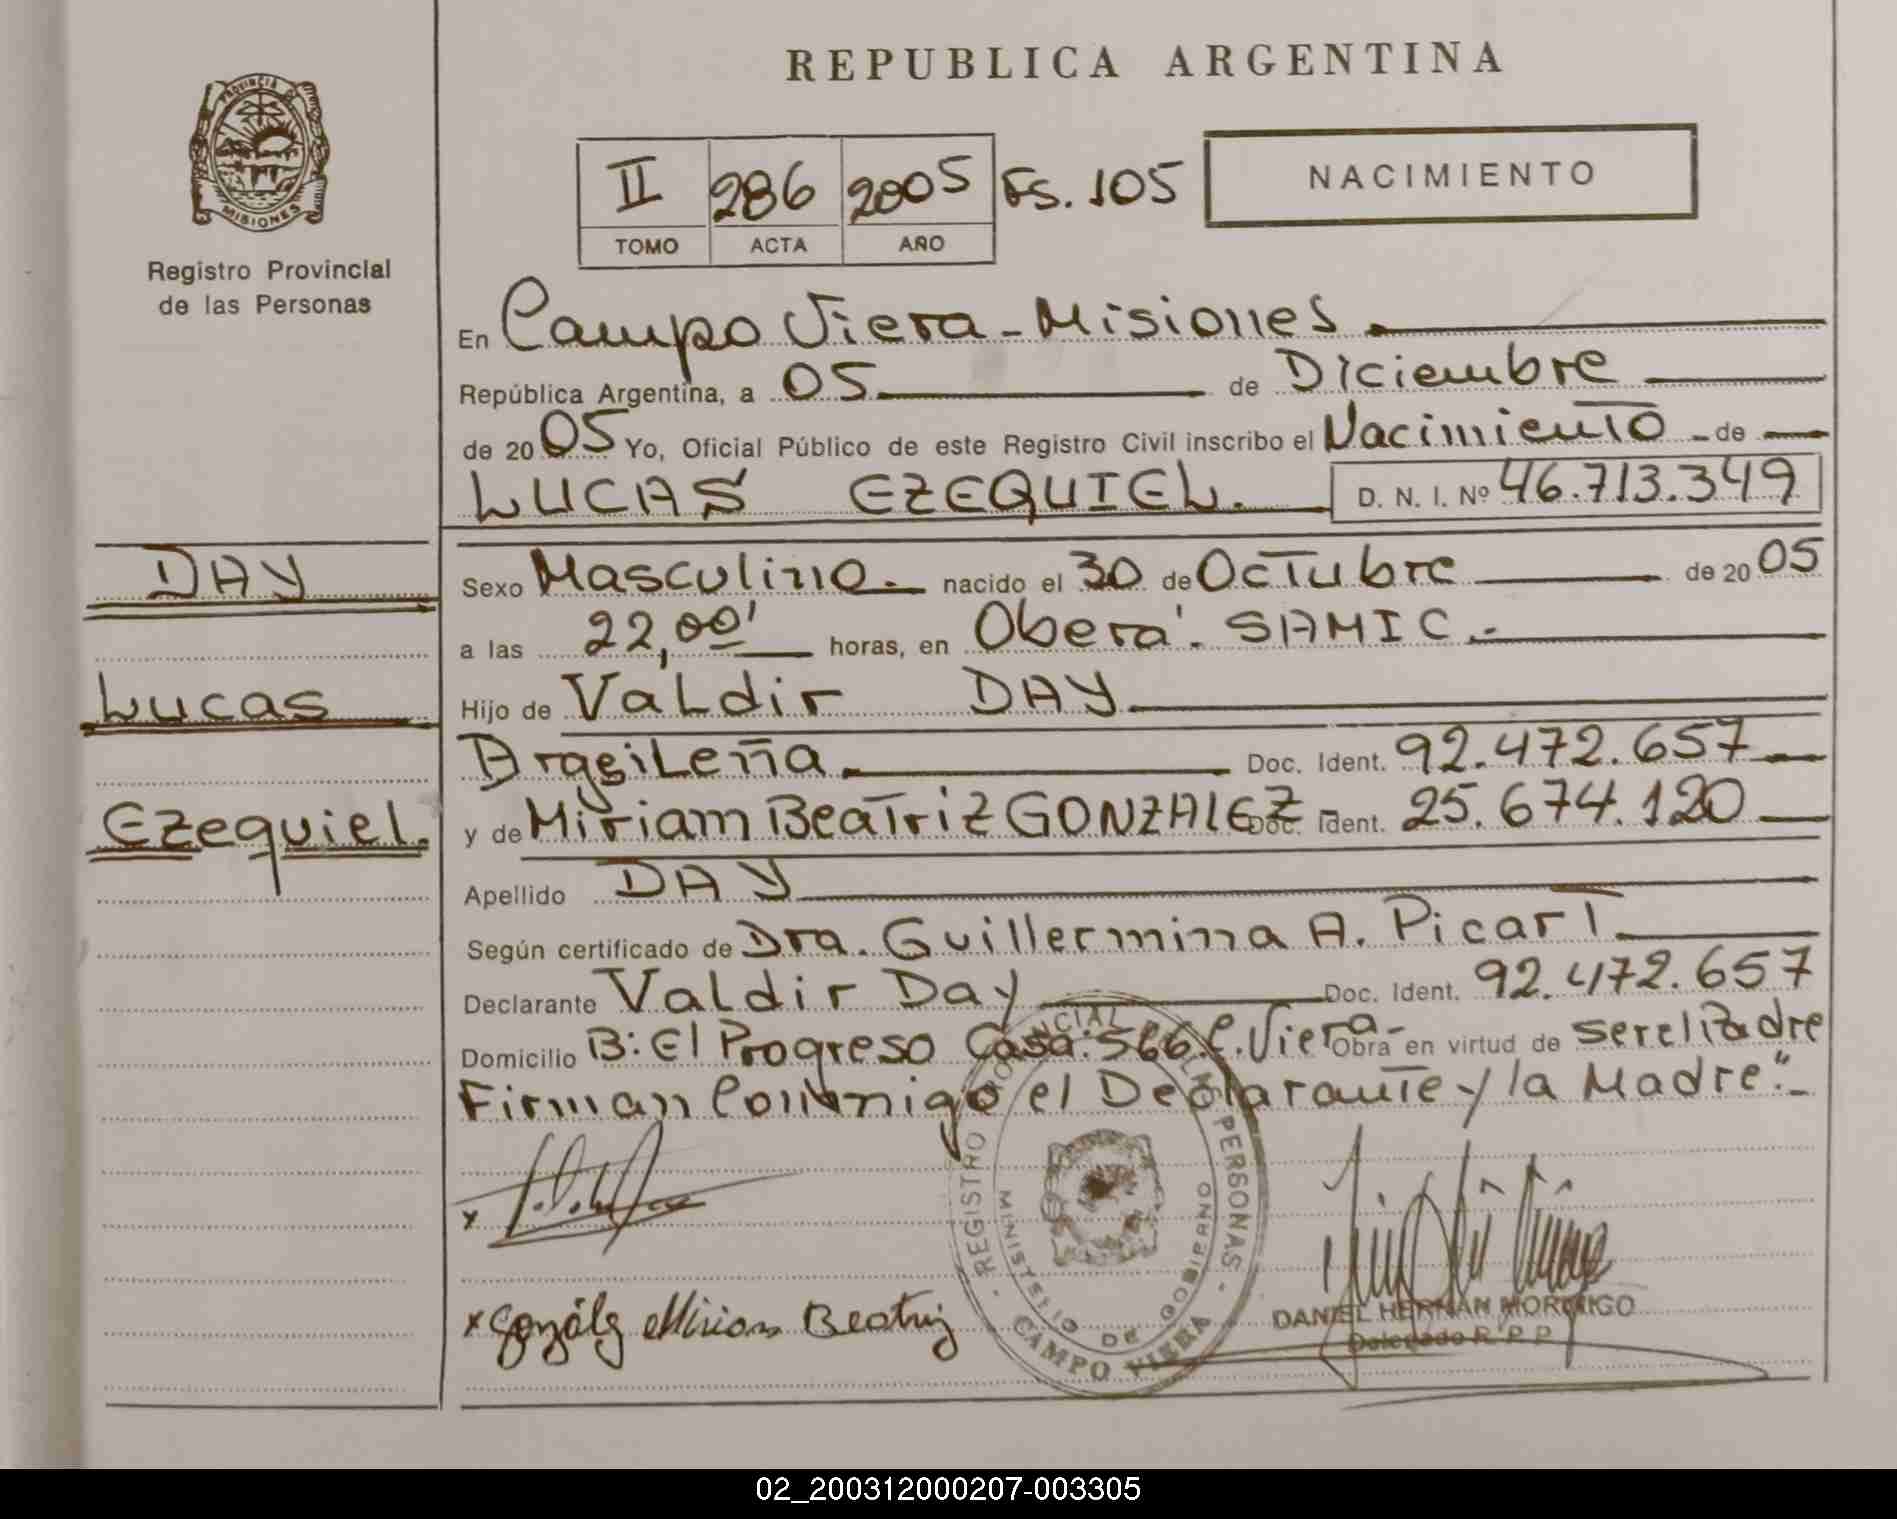 REPUBLICA ARGENTINA
PROVINCIA DE
MISIONES
Registro Provincial
de las Personas
II 286 2005 Fs. 105
TOMO ACTA AÑO
NACIMIENTO
En Campo Viera - Misiones
República Argentina, a 05 de Diciembre
de 2005 Yo, Oficial Público de este Registro Civil inscribo el Nacimiento de
LUCAS EZEQUIEL. D. N. I. Nº 46.713.349
DAY
Lucas
Ezequiel.
Sexo Masculino. nacido el 30 de Octubre de 2005
a las 22,00' horas, en Oberá. SAMIC.-
Hijo de Valdir DAY
Brasileña Doc. Ident. 92.472.657
y de Miriam Beatriz GONZALEZ Doc. Ident. 25.674.120
Apellido DAY
Según certificado de Dra. Guillermina A. Picart
Declarante Valdir Day Doc. Ident. 92.472.657
Domicilio B: El Progreso Casa: 566. C. Viera- Obra en virtud de ser el Padre
Firman Conmigo el Declarante y la Madre".-
REGISTRO PROVINCIAL DE LAS PERSONAS
MINISTERIO DE GOBIERNO
CAMPO VIERA
x
x Gonzálz Miriam Beatriz
DANIEL HERNAN MORINIGO
Delegado R. P. P.
02_200312000207-003305